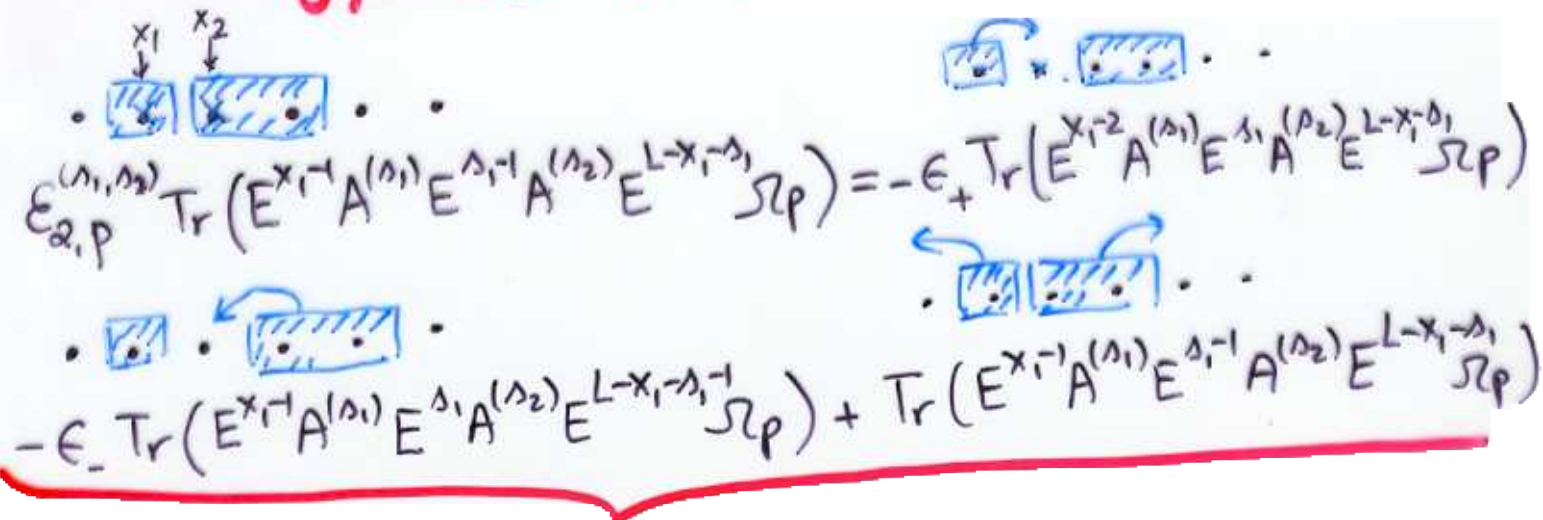 x₁ x₂
ε₂,ₚ^(s₁,s₂) Tr(E^(x₁-1) A^(s₁) E^(s₁-1) A^(s₂) E^(L-x₁-s₁) Ωₚ) = -ϵ₊ Tr(E^(x₁-2) A^(s₁) E^(s₁) A^(s₂) E^(L-x₁-s₁) Ωₚ)
-ϵ₋ Tr(E^(x₁-1) A^(s₁) E^(s₁) A^(s₂) E^(L-x₁-s₁-1) Ωₚ) + Tr(E^(x₁-1) A^(s₁) E^(s₁-1) A^(s₂) E^(L-x₁-s₁) Ωₚ)